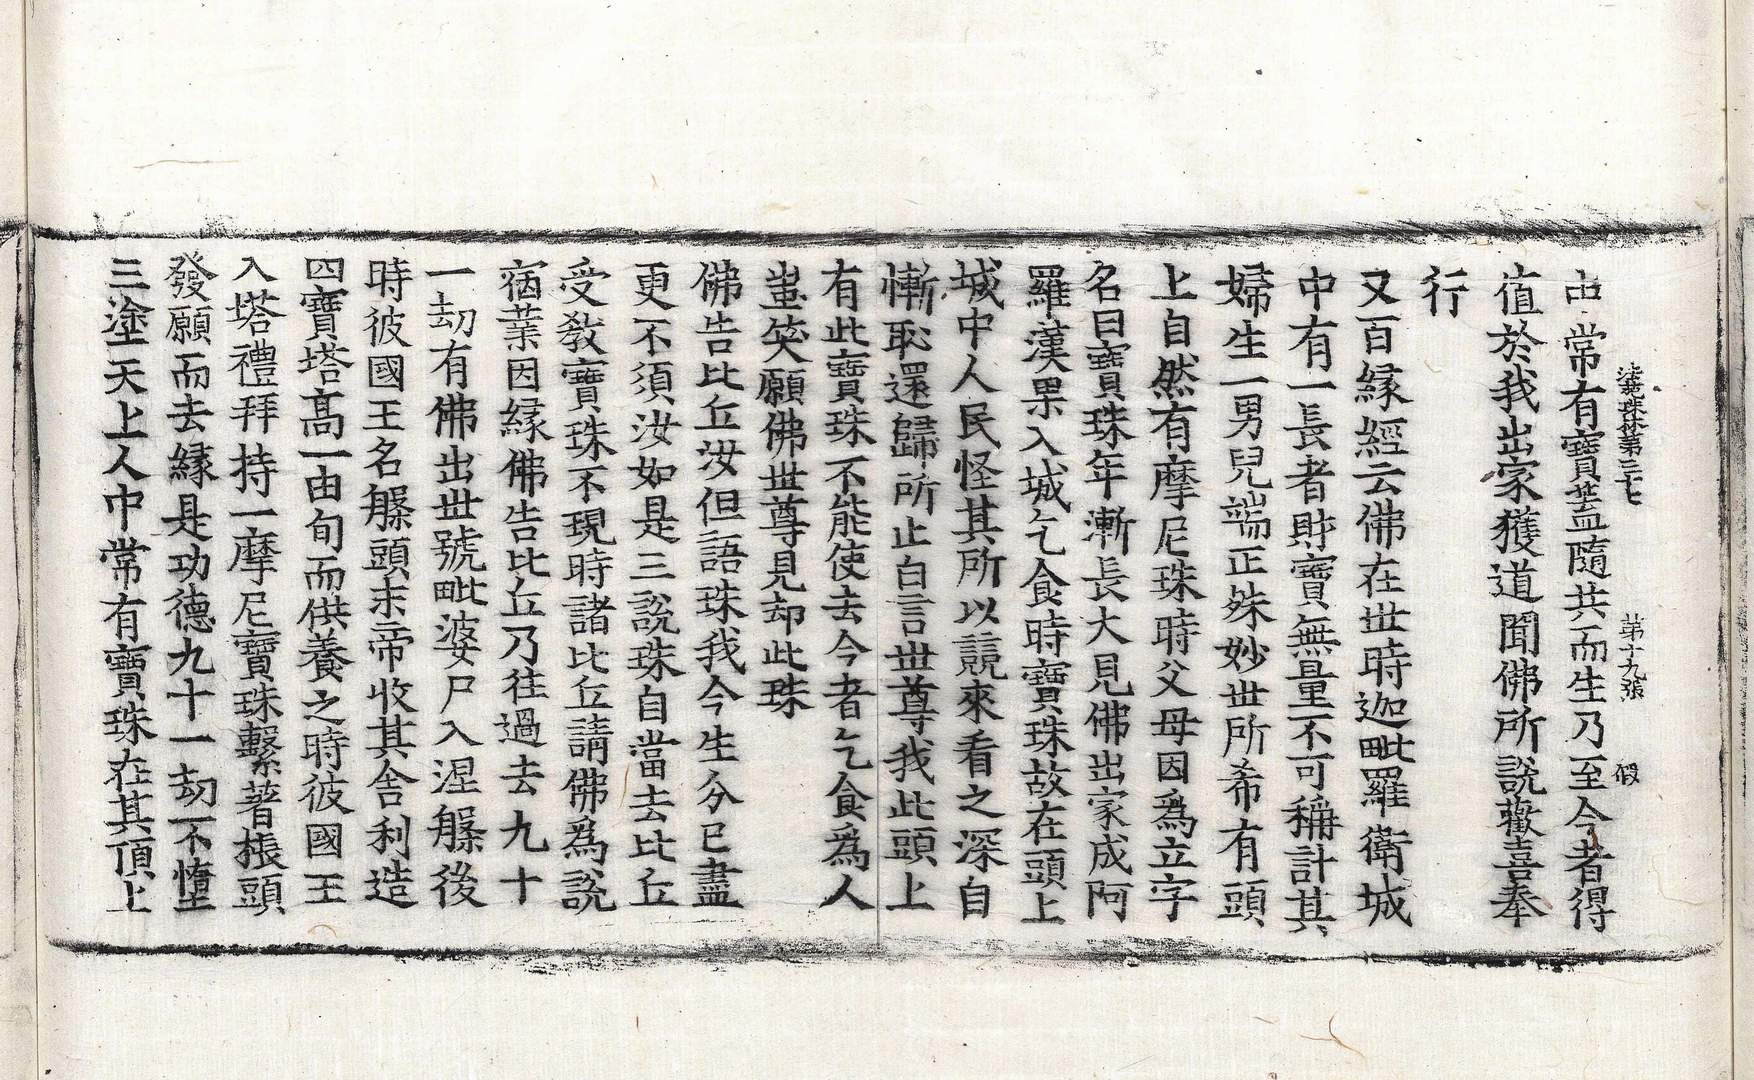 法苑珠林第三十七　第十九張　假
中常有寶蓋隨共而生乃至今者得
值於我出家獲道聞佛所說歡喜奉
行
又百緣經云佛在世時迦毗羅衛城
中有一長者財寶無量不可稱計其
婦生一男兒端正殊妙世所希有頭
上自然有摩尼珠時父母因爲立字
名曰寶珠年漸長大見佛出家成阿
羅漢果入城乞食時寶珠故在頭上
城中人民怪其所以競來看之深自
慚恥還歸所止白言世尊我此頭上
有此寶珠不能使去今者乞食爲人
蚩笑願佛世尊見却此珠
佛告比丘汝但語珠我今生分已盡
更不須汝如是三說珠自當去比丘
受教寶珠不現時諸比丘請佛爲說
宿業因緣佛告比丘乃往過去九十
一劫有佛出世號毗婆尸入涅槃後
時彼國王名槃頭末帝收其舍利造
四寶塔高一由旬而供養之時彼國王
入塔禮拜持一摩尼寶珠繫著棖頭
發願而去緣是功德九十一劫不墮
三塗天上人中常有寶珠在其頂上